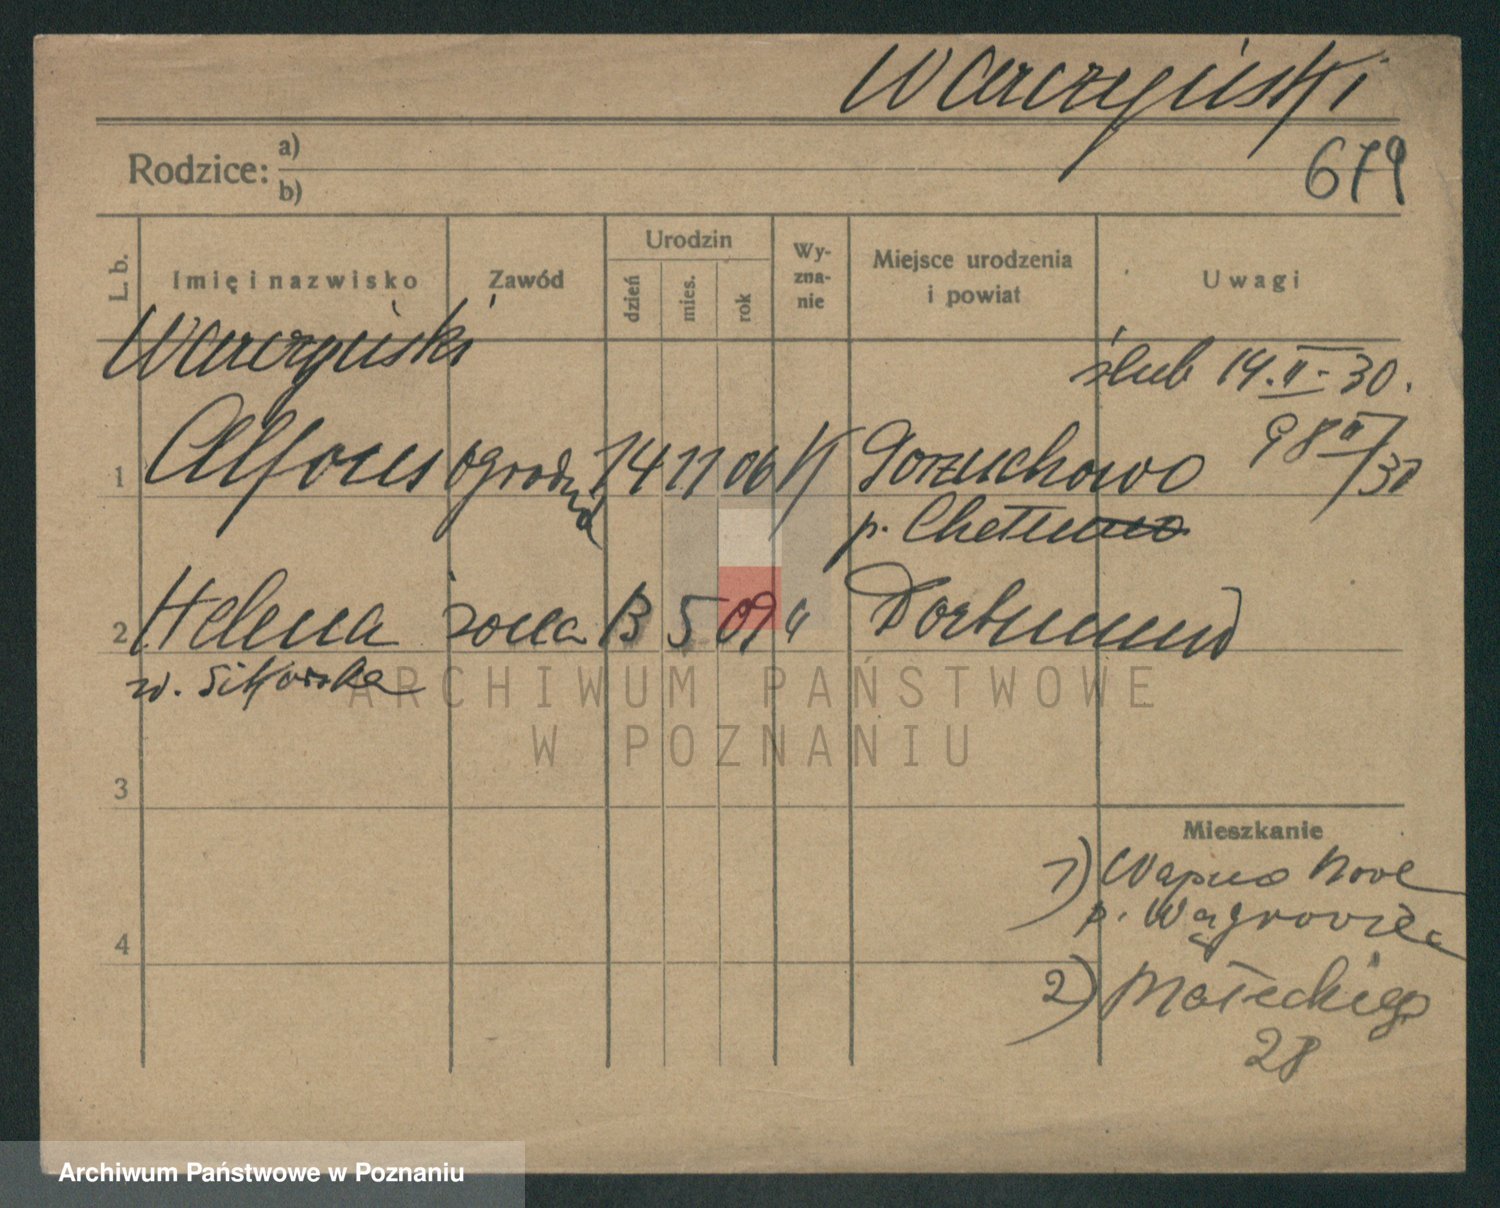 Warczyński
679
Rodzice: a)
b)
L. b.
Imię i nazwisko
Zawód
Urodzin
dzień
mies.
rok
Wy-
zna-
nie
Miejsce urodzenia
i powiat
Uwagi
Warczyński
ślub 14.II-30.
98 II/30
1 Alfons ogrodnik 14 11 06 K Gorzuchowo
p. Chełmno
2 Helena żona 13 5 09 " Dortmund
z d. Sikorska
ARCHIWUM PAŃSTWOWE
W POZNANIU
3
Mieszkanie
1) Wapno Nowe
p. Wągrowiec
4
2) Małeckiego
28
Archiwum Państwowe w Poznaniu